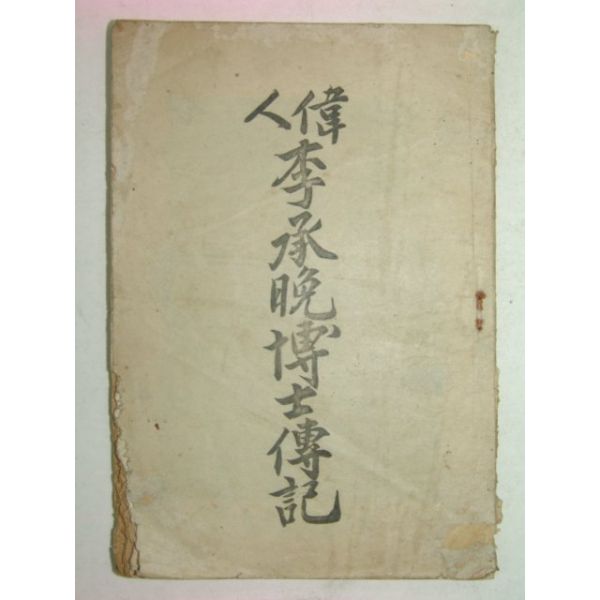 偉人
李承晩博士傳記